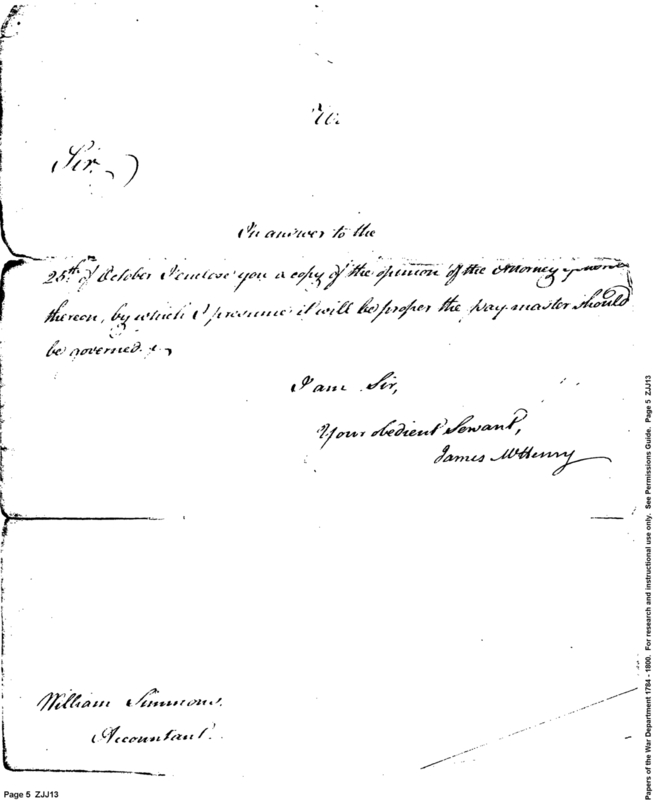 Sir.
In answer to the
25th of October I enclose you a copy of the opinion of the Attorney
thereon, by which I presume it will be proper the Paymaster should
be governed.
I am Sir,
Your obedient Servant,
James McHenry
William Simmons.
Accountant.
Page 5 ZJJ13
Papers of the War Department 1784 - 1800. For research and instructional use only. See Permissions Guide. Page 5 ZJJ13